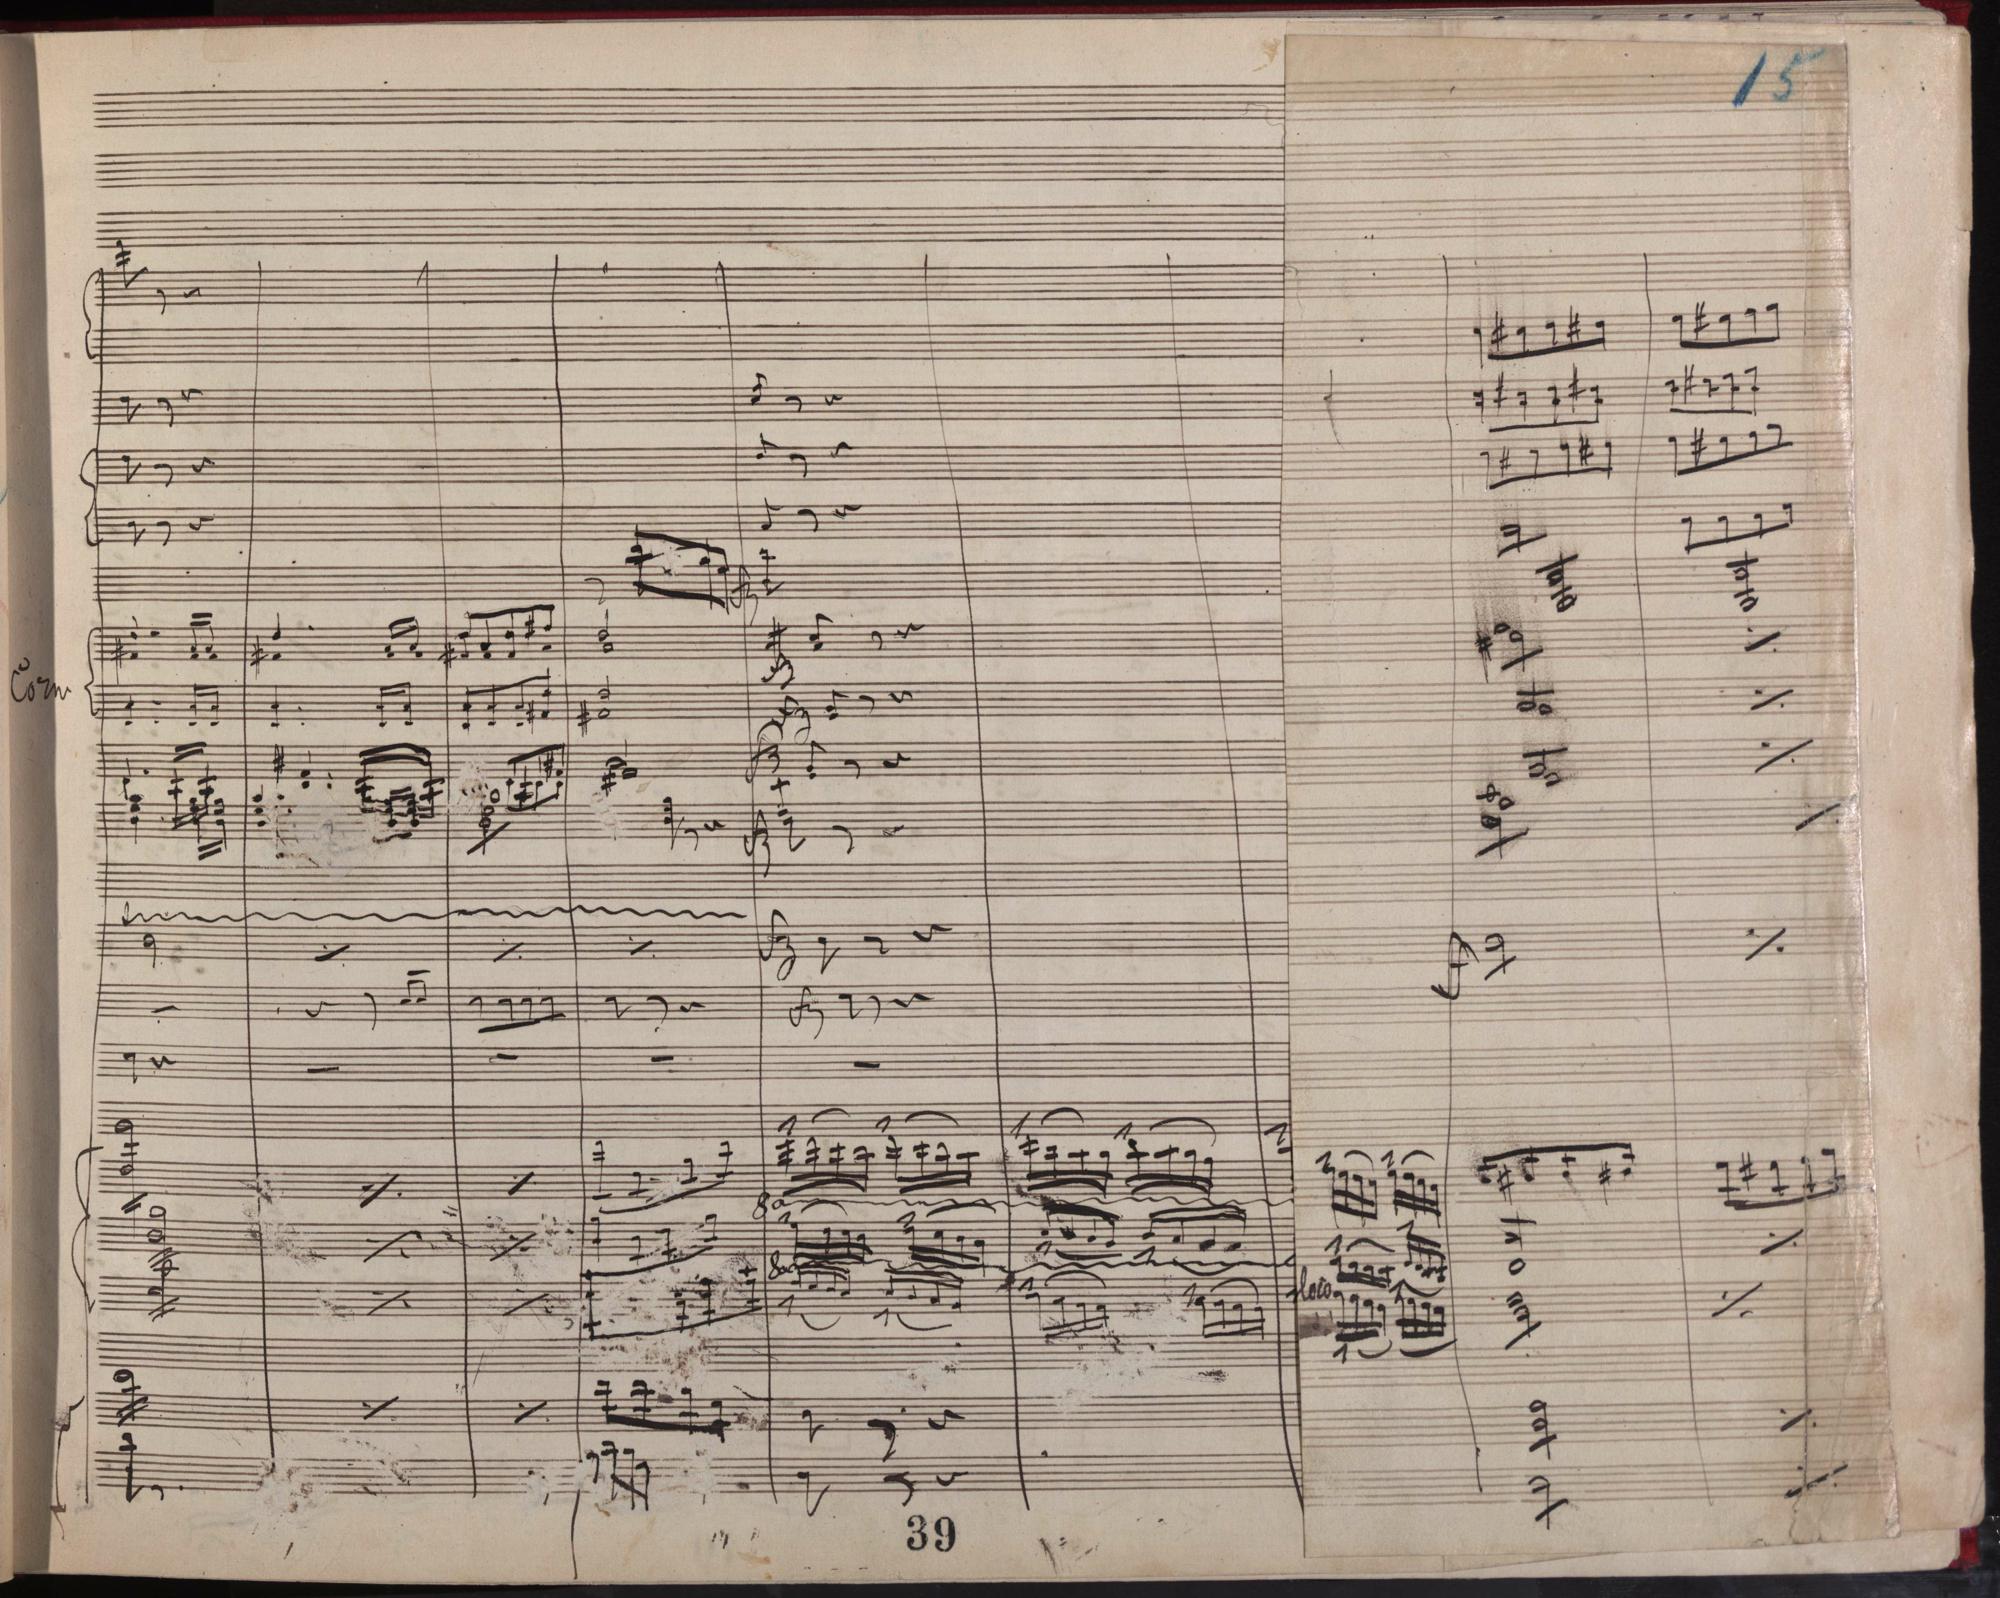 15
Corni
8a
8a
loco
39